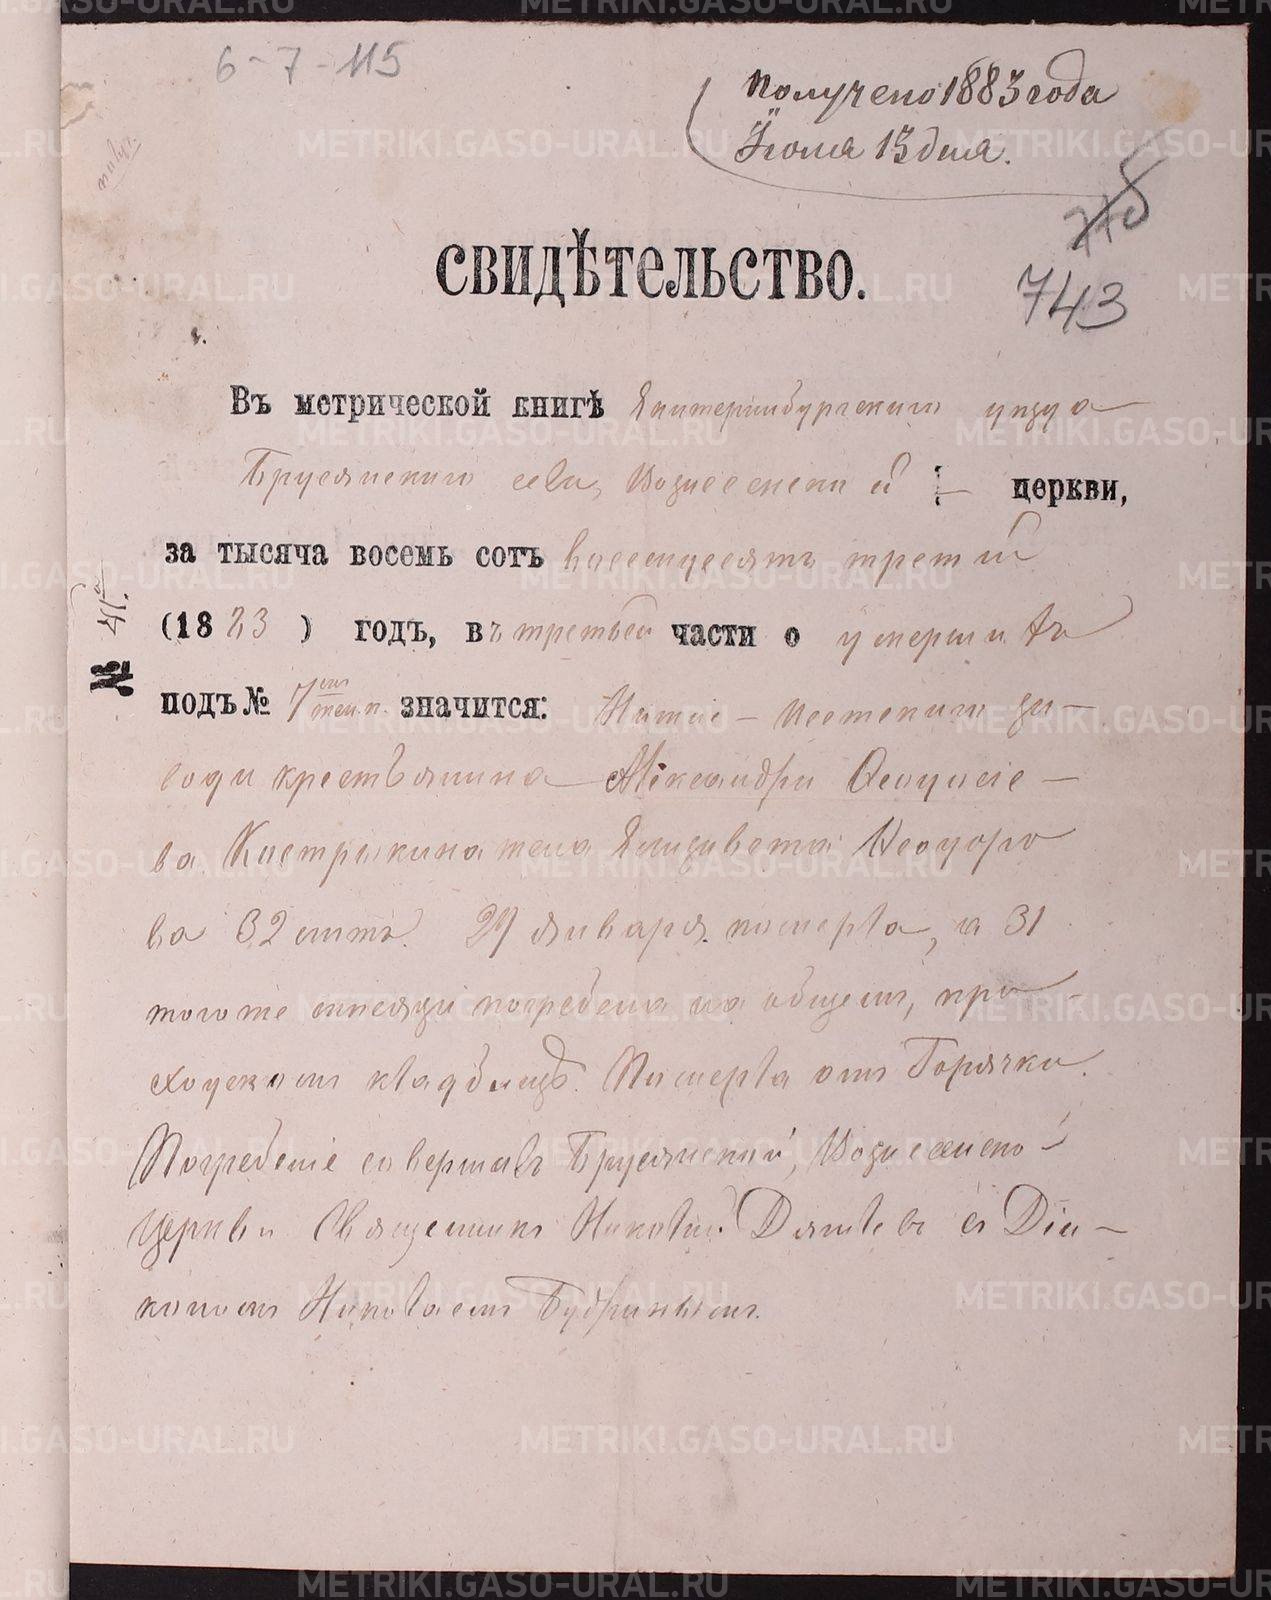 6-7-115
получено 1883 года
Іюля 13 дня.
получ.
743
СВИДѢТЕЛЬСТВО.
Въ метрической книгѣ Екатеринбургскаго уѣзда
Брусянскаго села, Вознесенской церкви,
за тысяча восемь сотъ восемьдесятъ третій
(1883) годъ, въ третьей части о умершихъ
№ 41.
подъ № 7 жен. п. значится: Нижне-Исетскаго за-
вода крестьянина Александра
ва Кастрыкина жена Елизавета Ѳеодоро
ва 32 лѣтъ. 29 января померла, а 31
тогоже мѣсяца погребена на общемъ, при-
ходскомъ кладбищѣ. Померла отъ Горячки.
Погребеніе совершалъ Брусянской, Вознесенской
Церкви Священникъ Николай съ Діа-
кономъ Николаемъ Будринымъ.
METRIKI.GASO-URAL.RU